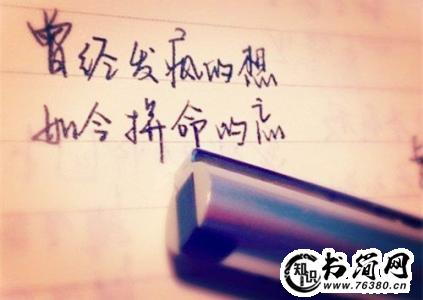 曾经发疯的想
如今拼命的忘
知识
书简网
www.76380.cn